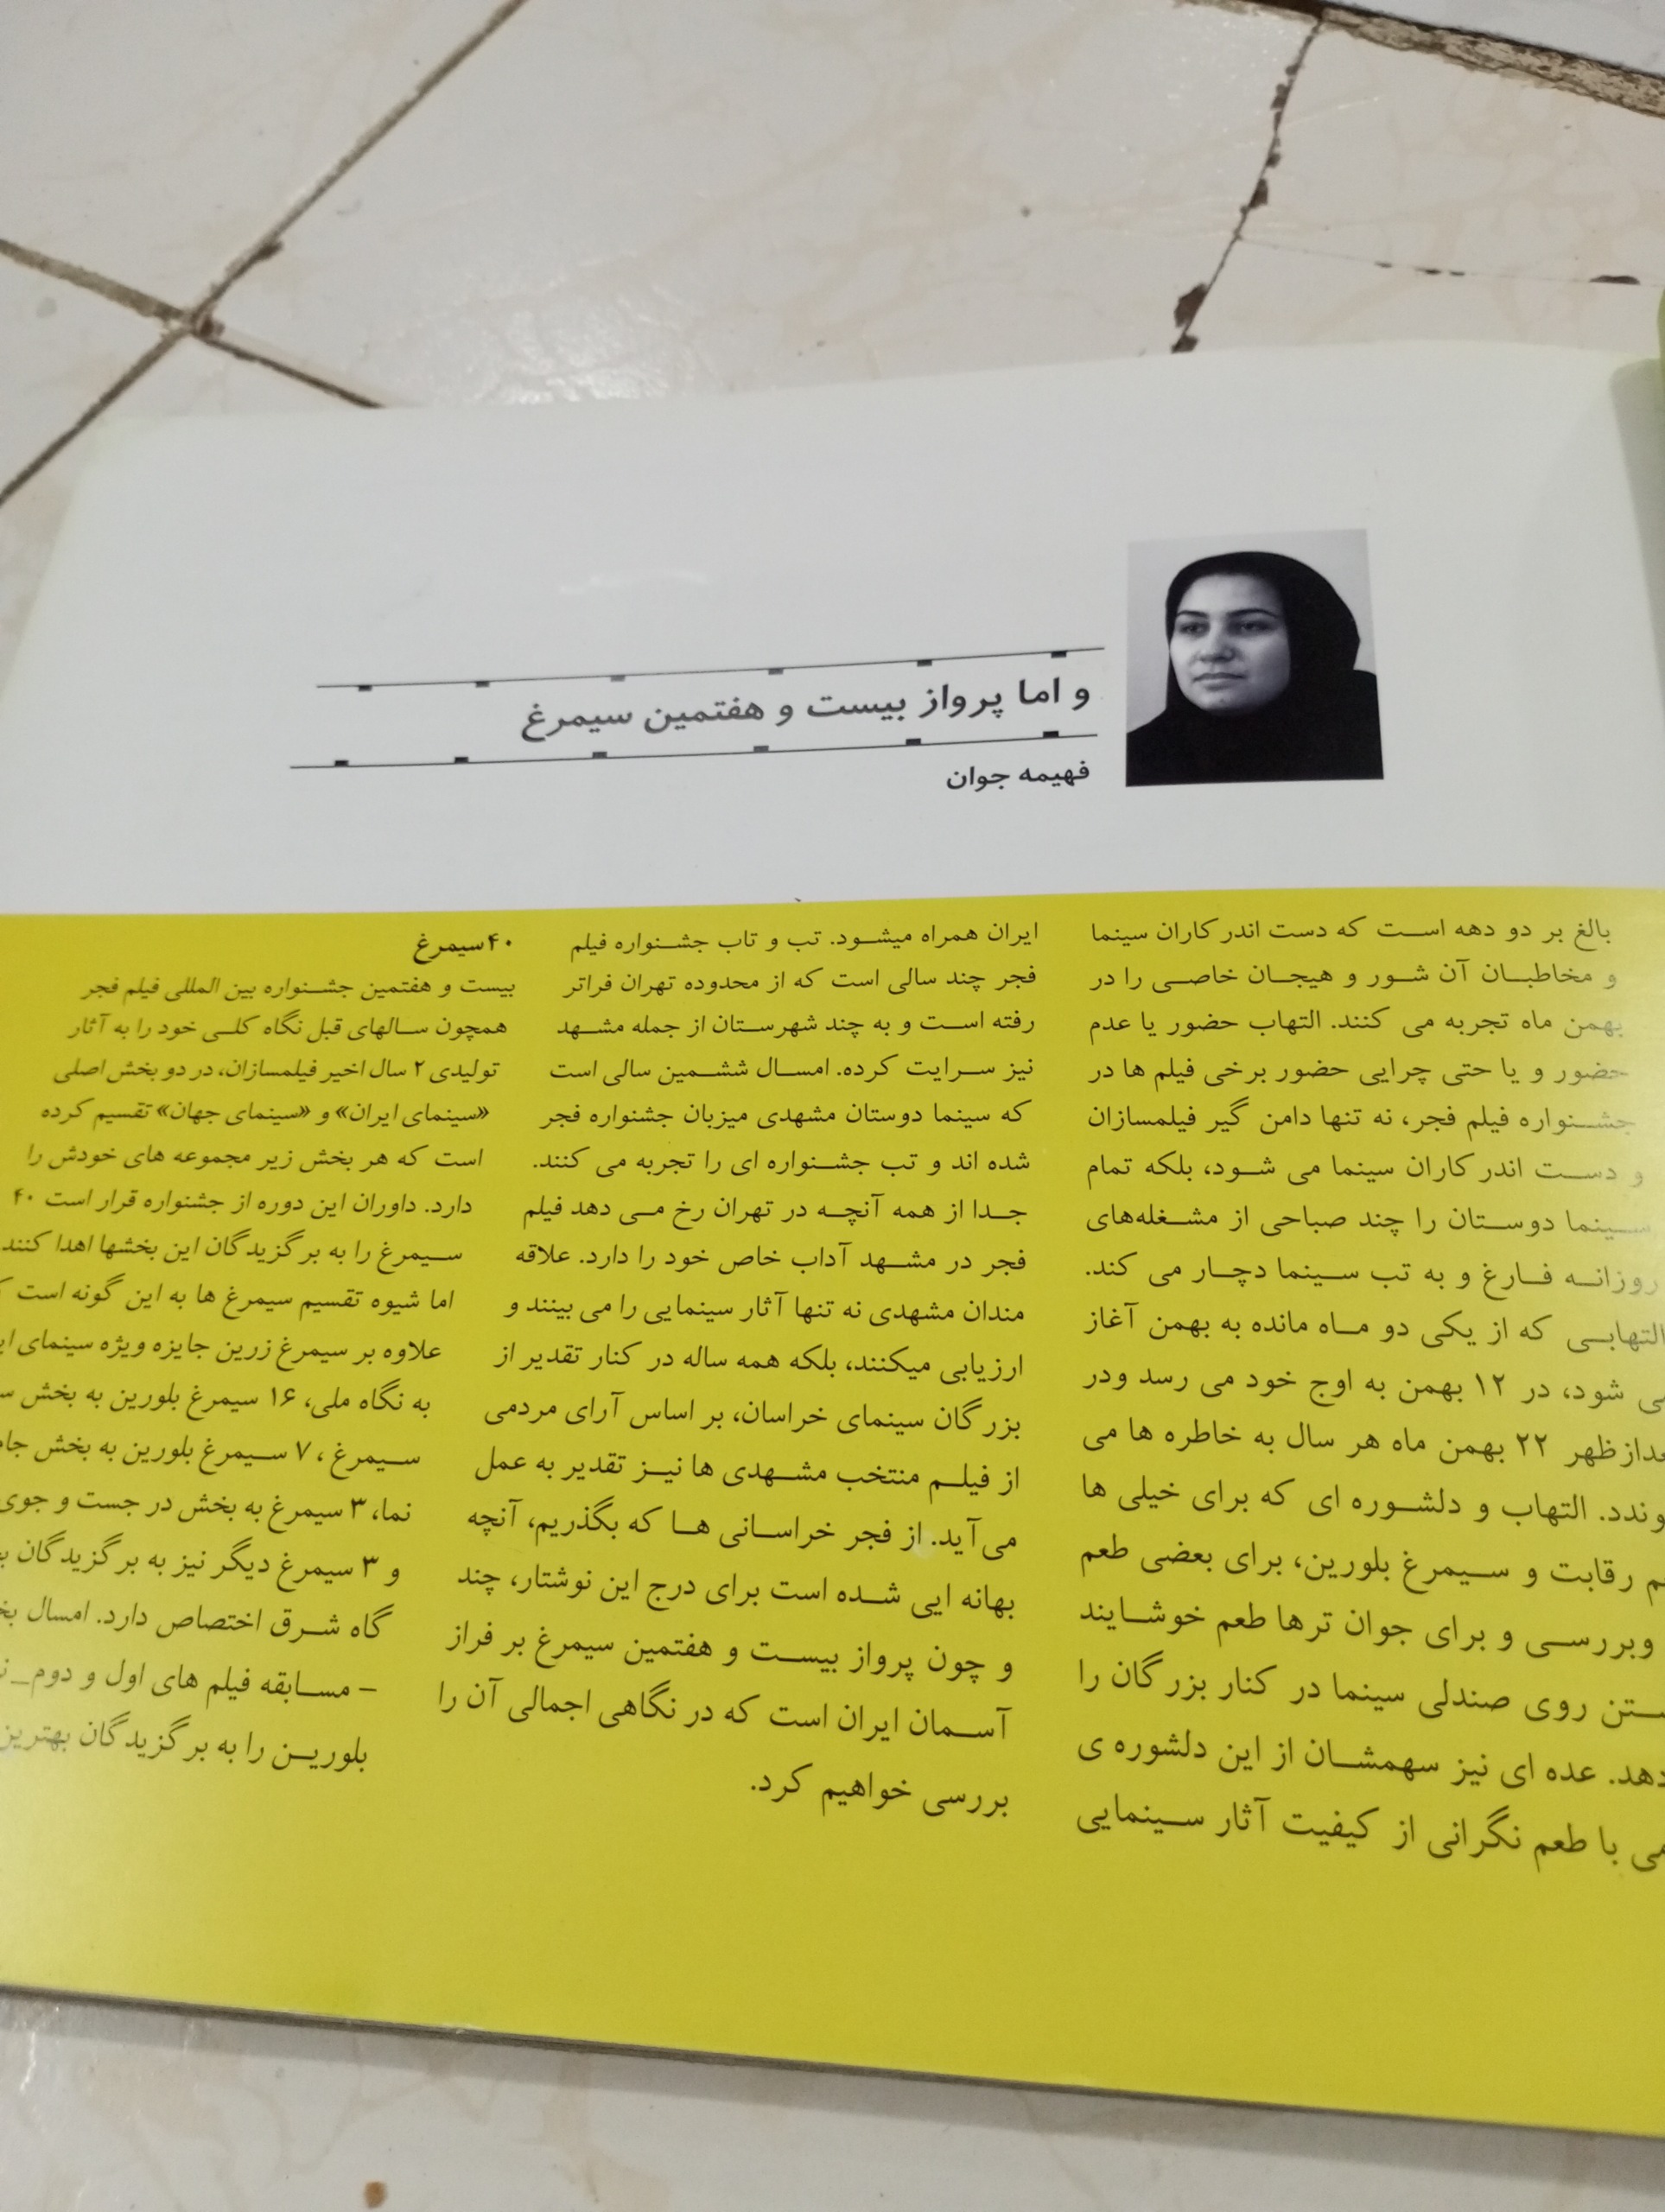 و اما پرواز بیست و هفتمین سیمرغ
فهیمه جوان
بالغ بر دو دهه است که دست اندرکاران سینما
و مخاطبان آن شور و هیجان خاصی را در
بهمن ماه تجربه می کنند. التهاب حضور یا عدم
حضور و یا حتی چرایی حضور برخی فیلم ها در
جشنواره فیلم فجر، نه تنها دامن گیر فیلمسازان
و دست اندرکاران سینما می شود، بلکه تمام
سینما دوستان را چند صباحی از مشغله‌های
روزانه فارغ و به تب سینما دچار می کند.
التهابی که از یکی دو ماه مانده به بهمن آغاز
می شود، در ۱۲ بهمن به اوج خود می رسد ودر
بعدازظهر ۲۲ بهمن ماه هر سال به خاطره ها می
التهاب و دلشوره ای که برای خیلی ها
رقابت و سیمرغ بلورین، برای بعضی طعم
وبررسی و برای جوان ترها طعم خوشایند
روی صندلی سینما در کنار بزرگان را
عده ای نیز سهمشان از این دلشوره ی
با طعم نگرانی از کیفیت آثار سینمایی
ایران همراه میشود. تب و تاب جشنواره فیلم
فجر چند سالی است که از محدوده تهران فراتر
رفته است و به چند شهرستان از جمله مشهد
نیز سرایت کرده. امسال ششمین سالی است
که سینما دوستان مشهدی میزبان جشنواره فجر
شده اند و تب جشنواره ای را تجربه می کنند.
جدا از همه آنچه در تهران رخ می دهد فیلم
فجر در مشهد آداب خاص خود را دارد. علاقه
مندان مشهدی نه تنها آثار سینمایی را می بینند و
ارزیابی میکنند، بلکه همه ساله در کنار تقدیر از
بزرگان سینمای خراسان، بر اساس آرای مردمی
از فیلم منتخب مشهدی ها نیز تقدیر به عمل
می‌آید. از فجر خراسانی ها که بگذریم، آنچه
بهانه ایی شده است برای درج این نوشتار، چند
و چون پرواز بیست و هفتمین سیمرغ بر فراز
آسمان ایران است که در نگاهی اجمالی آن را
بررسی خواهیم کرد.
۴۰سیمرغ
بیست و هفتمین جشنواره بین المللی فیلم فجر
همچون سالهای قبل نگاه کلی خود را به آثار
تولیدی ۲ سال اخیر فیلمسازان، در دو بخش اصلی
«سینمای ایران» و «سینمای جهان» تقسیم کرده
است که هر بخش زیر مجموعه های خودش را
دارد. داوران این دوره از جشنواره قرار است ۴۰
سیمرغ را به برگزیدگان این بخشها اهدا کنند
اما شیوه تقسیم سیمرغ ها به این گونه است
علاوه بر سیمرغ زرین جایزه ویژه سینمای
به نگاه ملی، ۱۶ سیمرغ بلورین به بخش
سیمرغ ، ۷ سیمرغ بلورین به بخش
نما، ۳ سیمرغ به بخش در جست و جوی
و ۳ سیمرغ دیگر نیز به برگزیدگان
گاه شرق اختصاص دارد. امسال
– مسابقه فیلم های اول و دوم_
بلورین را به برگزیدگان بهترین